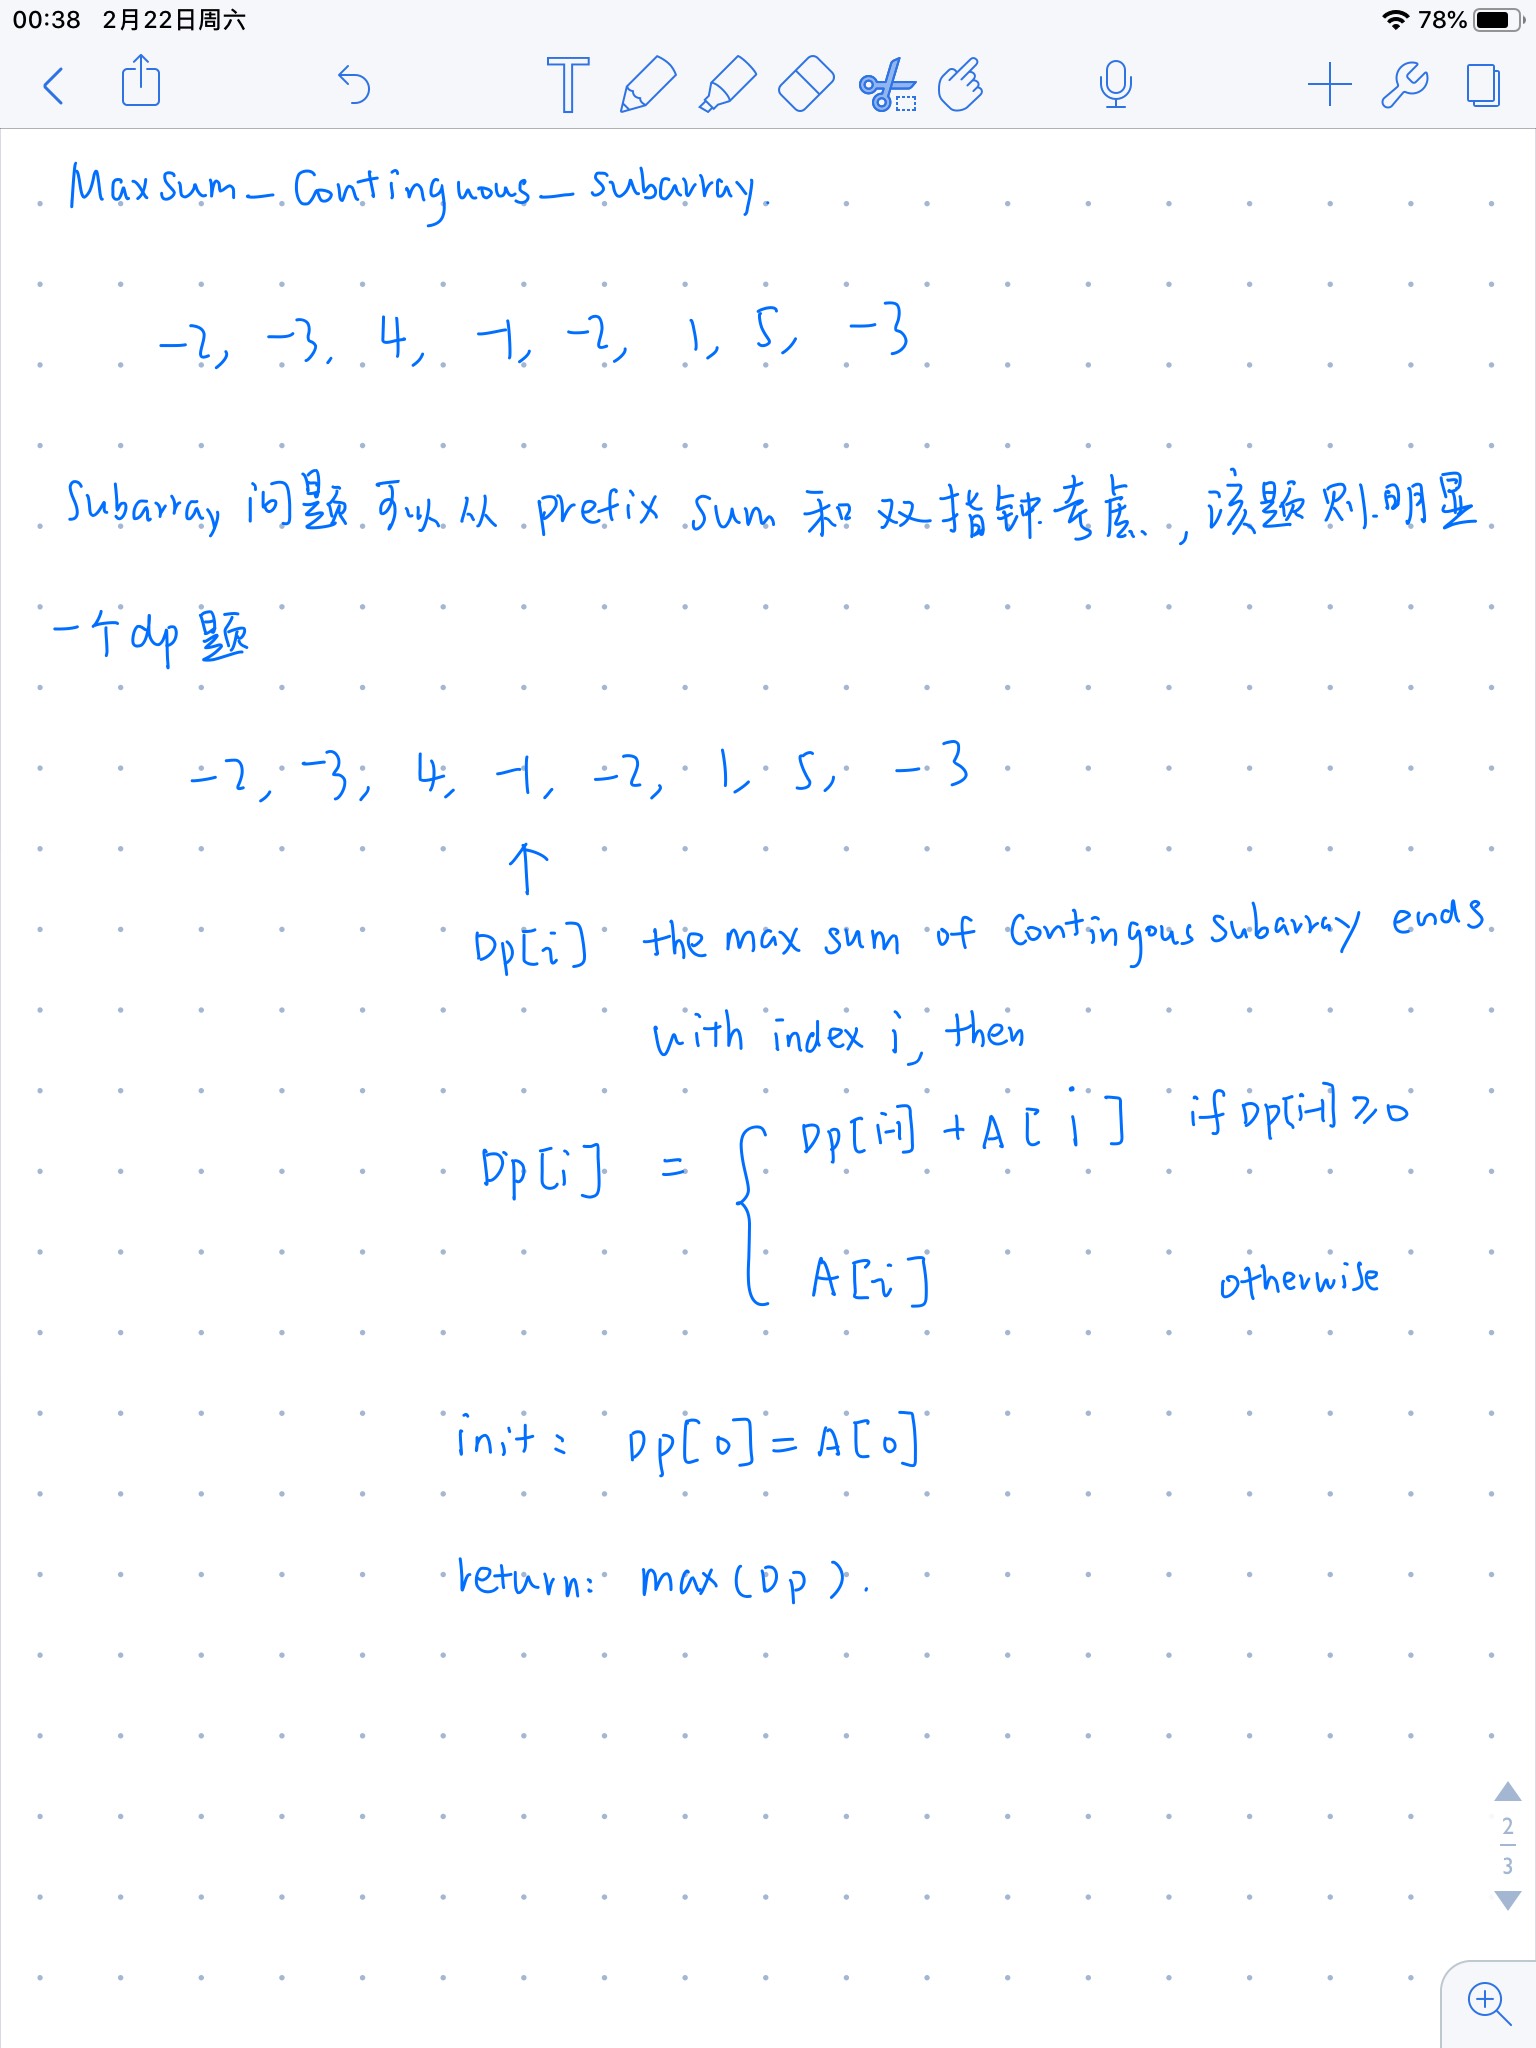 00:38 2月22日周六 78%
T
Maxsum_Continguous_subarray.
-2, -3, 4, -1, -2, 1, 5, -3
Subarray 问题可以从 prefix sum 和双指钟考虑, 该题则明显
一个dp题
-2, -3, 4, -1, -2, 1, 5, -3
↑
Dp[i] the max sum of Contingous subarray ends
with index i, then
Dp[i] = { Dp[i-1] + A[i] if Dp[i-1] ≥ 0
A[i] otherwise
init: Dp[0] = A[0]
return: max(Dp).
2
3